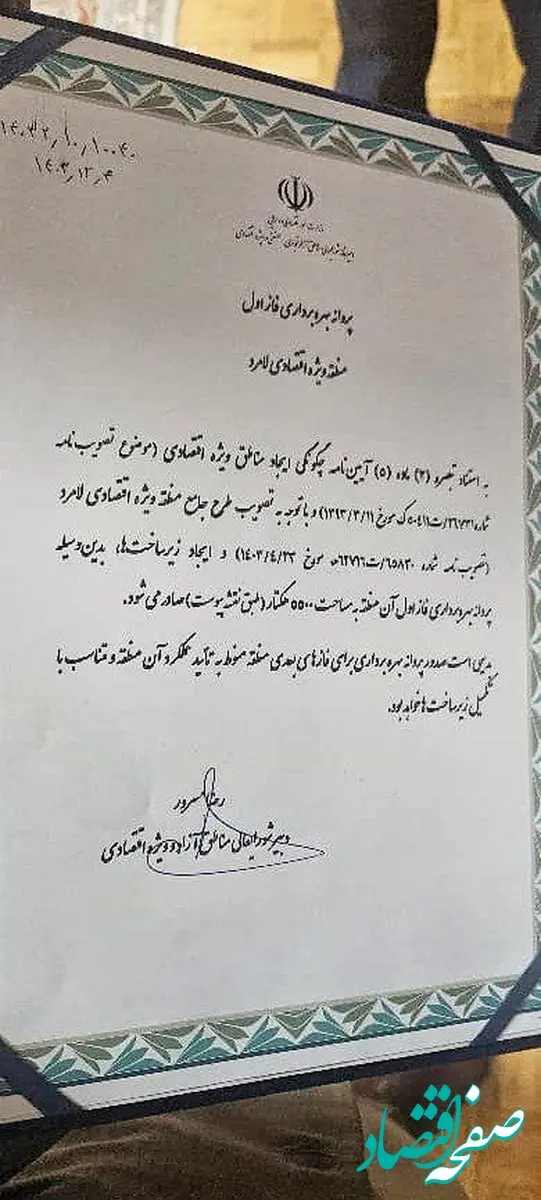 ۱۴۰۳/۱۲/۴
پروانه بهره برداری فاز اول
منطقه ویژه اقتصادی لامرد
به استناد تبصره (۲) ماده (۵) آیین نامه چگونگی ایجاد مناطق ویژه اقتصادی (موضوع تصویب نامه
شماره ۲۶۷۳۱/ت۵۰۴۱۱ک مورخ ۱۳۹۳/۳/۱۱) و با توجه به تصویب طرح جامع منطقه ویژه اقتصادی لامرد
(تصویب نامه شماره ۶۵۸۳۰/ت۶۲۷۱۶ه مورخ ۱۴۰۳/۴/۲۳) و ایجاد زیرساخت‌ها، بدین وسیله
پروانه بهره برداری فاز اول آن منطقه به مساحت ۵۵۰۰ هکتار (طبق نقشه پیوست) صادر می شود.
بدیهی است صدور پروانه بهره برداری برای فازهای بعدی منطقه منوط به تأیید عملکرد آن منطقه و متناسب با
تکمیل زیرساخت ها خواهد بود.
رضا مسرور
دبیر شورایعالی مناطق آزاد و ویژه اقتصادی
صفحه اقتصاد